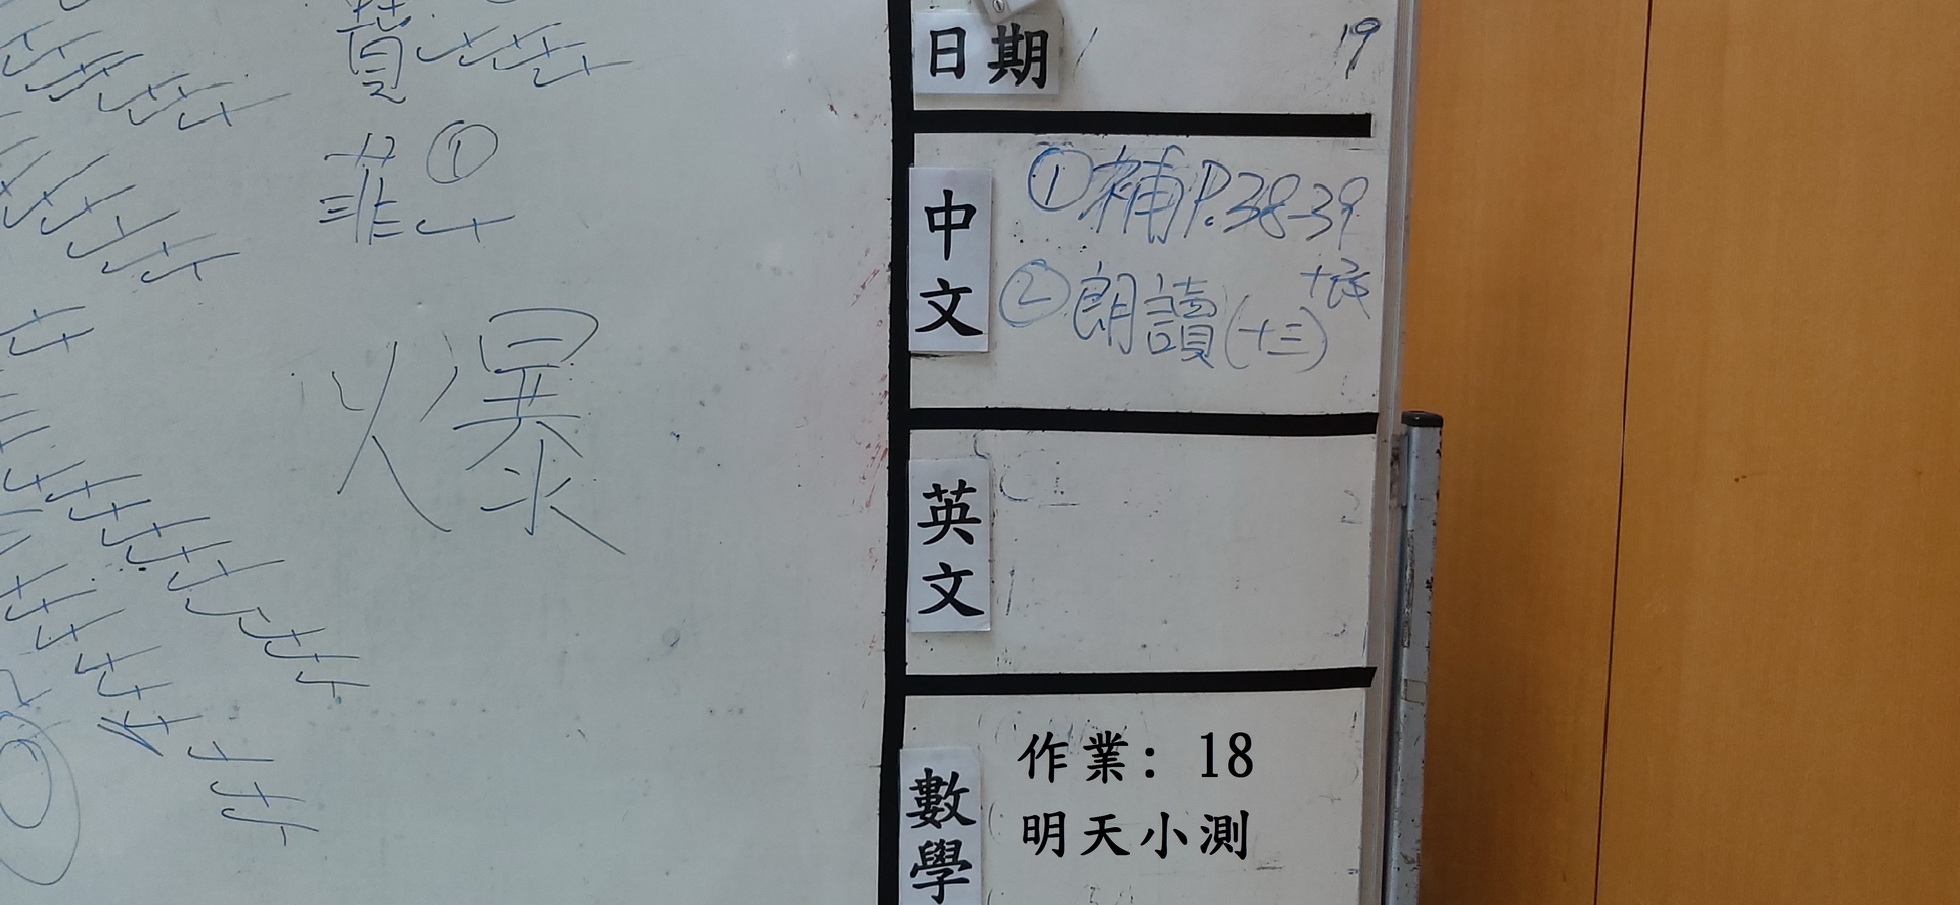 費
菲 ①
爆
日期 / 19
中文
① 補 P.38-39
② 朗讀(十三)
英文
數學
作業：18
明天小測